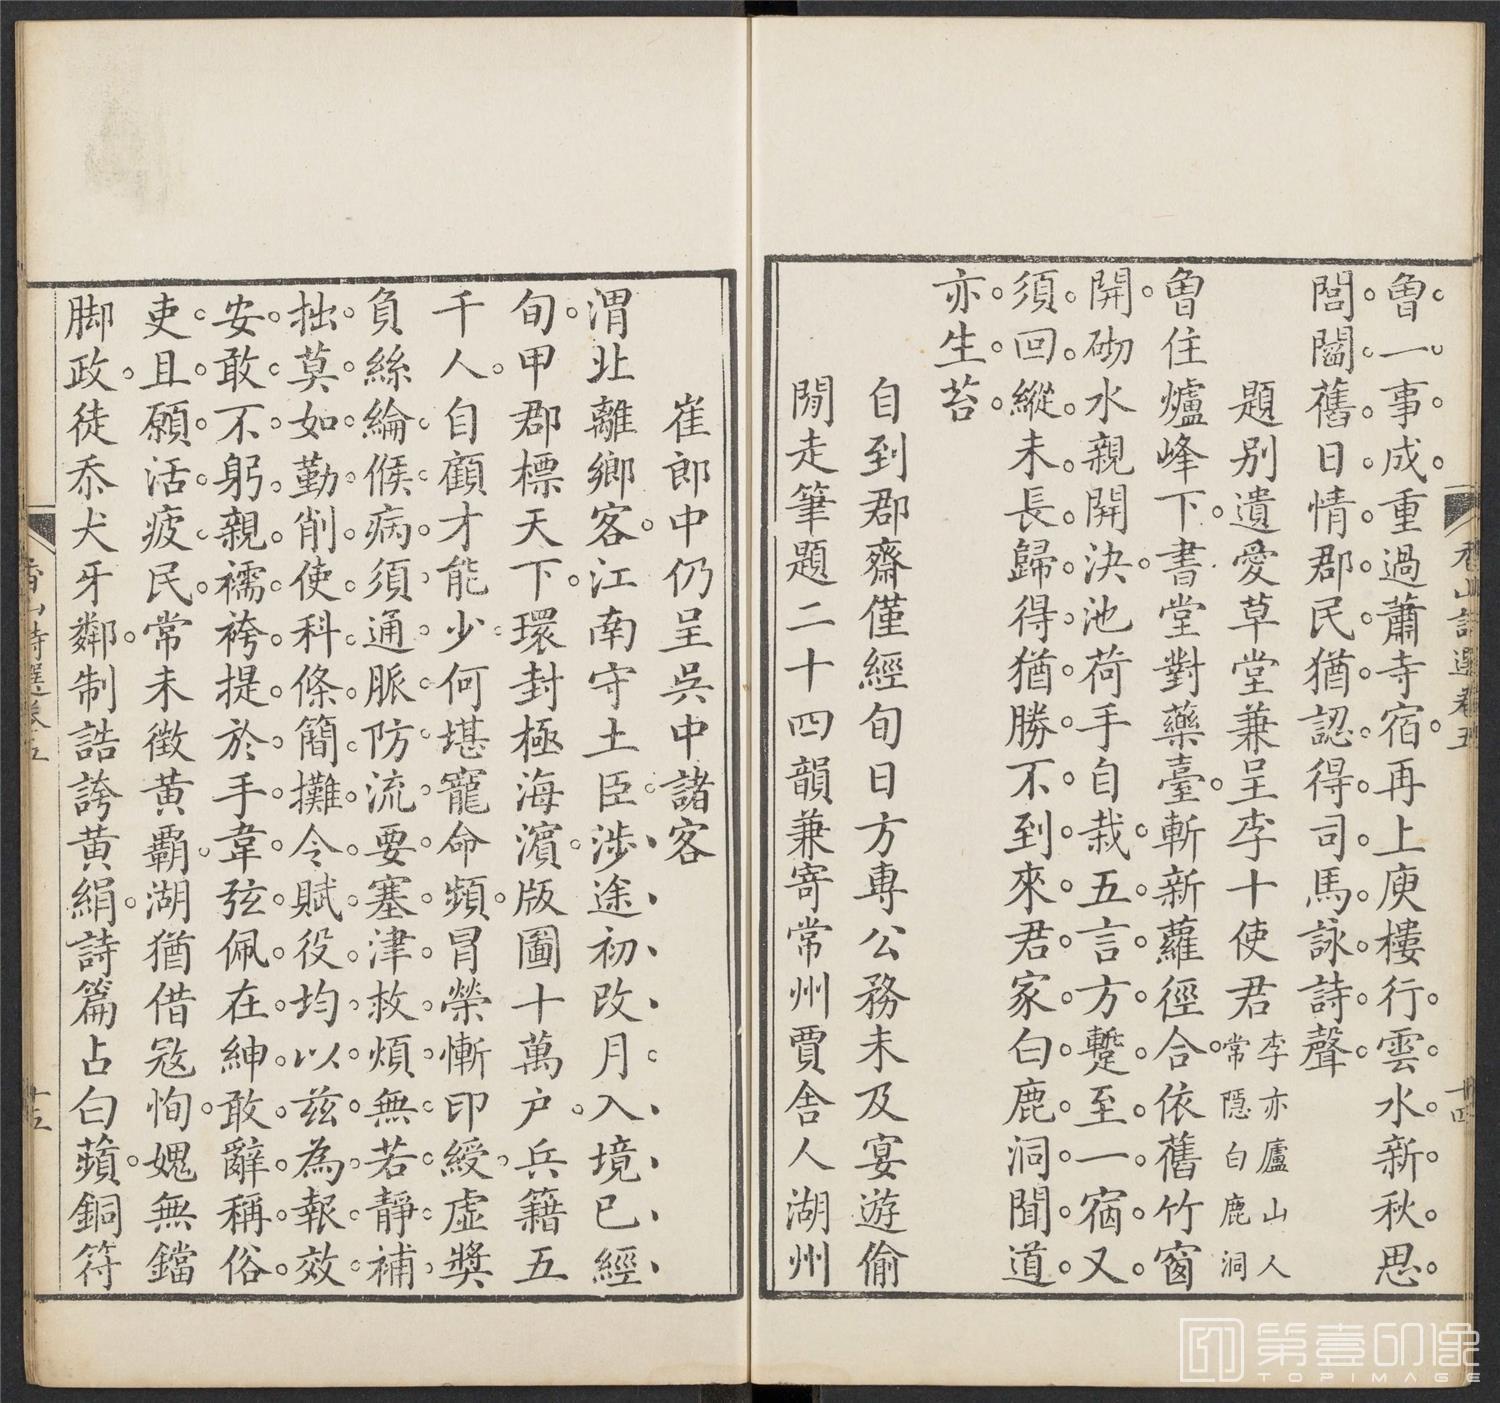 香山詩選卷五
十四
曾一事成重過蕭寺宿再上庾樓行雲水新秋思
閭閻舊日情郡民猶認得司馬詠詩聲
題別遺愛草堂兼呈李十使君李亦廬山人常隱白鹿洞
曾住爐峰下書堂對藥臺斬新蘿徑合依舊竹窗
開砌水親開決池荷手自栽五言方蹔至一宿又
須回縱未長歸得猶勝不到來君家白鹿洞聞道
亦生苔
自到郡齋僅經旬日方專公務未及宴遊偷
閒走筆題二十四韻兼寄常州賈舍人湖州
崔郎中仍呈吳中諸客
渭北離鄉客江南守土臣涉途初改月入境已經
旬甲郡標天下環封極海濱版圖十萬户兵籍五
千人自顧才能少何堪寵命頻冒榮慚印綬虛獎
負絲綸候病須通脈防流要塞津救煩無若靜補
拙莫如勤削使科條簡攤令賦役均以兹為報效
安敢不躬親襦袴提於手韋弦佩在紳敢辭稱俗
吏且願活疲民常未徴黃霸湖猶借寇恂媿無鐺
脚政徒忝犬牙鄰制誥誇黃絹詩篇占白蘋銅符
香山詩選卷五
十五
第壹印像
TOPIMAGE